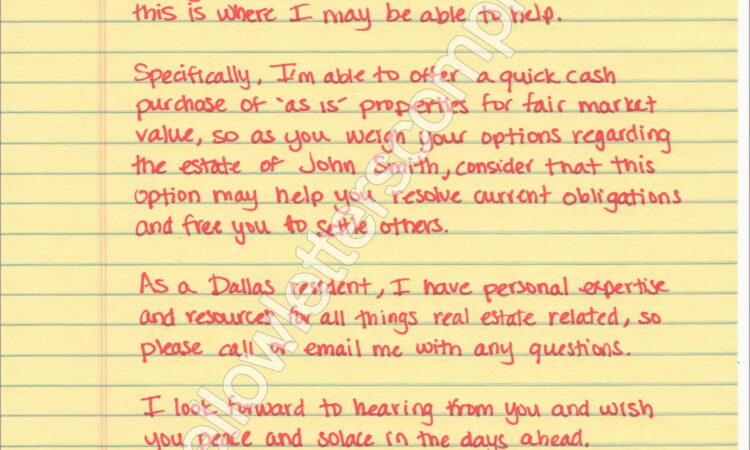 this is where I may be able to help.
Specifically, I'm able to offer a quick cash
purchase of "as is" properties for fair market
value, so as you weigh your options regarding
the estate of John Smith, consider that this
option may help you resolve current obligations
and free you to settle others.
As a Dallas resident, I have personal expertise
and resources for all things real estate related, so
please call or email me with any questions.
I look forward to hearing from you and wish
you peace and solace in the days ahead.
yellowletterscomp